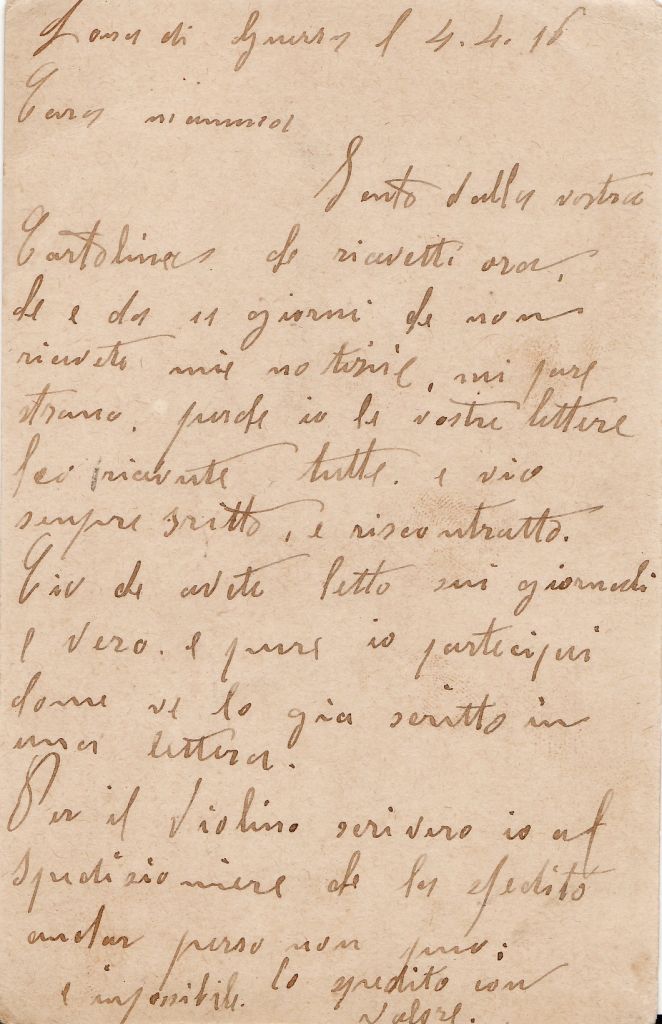 Zona di Guerra l 4.4.16
Cara mamma
Sento dalla vostra
Cartolina che ricevetti ora,
che e da giorni che non
ricevete mie notizie, mi pare
strano, perche io le vostre lettere
leo ricevute tutte. e vio
sempre scritto, e riscontratto.
Cio che avete letto sui giornali
e vero. e pure io partecipai
come ve lo gia scritto in
una lettera.
Per il Violino scrivero io al
spedisioniere che la spedito
andar perso non puo;
e impossibile. lo spedito con
valore.